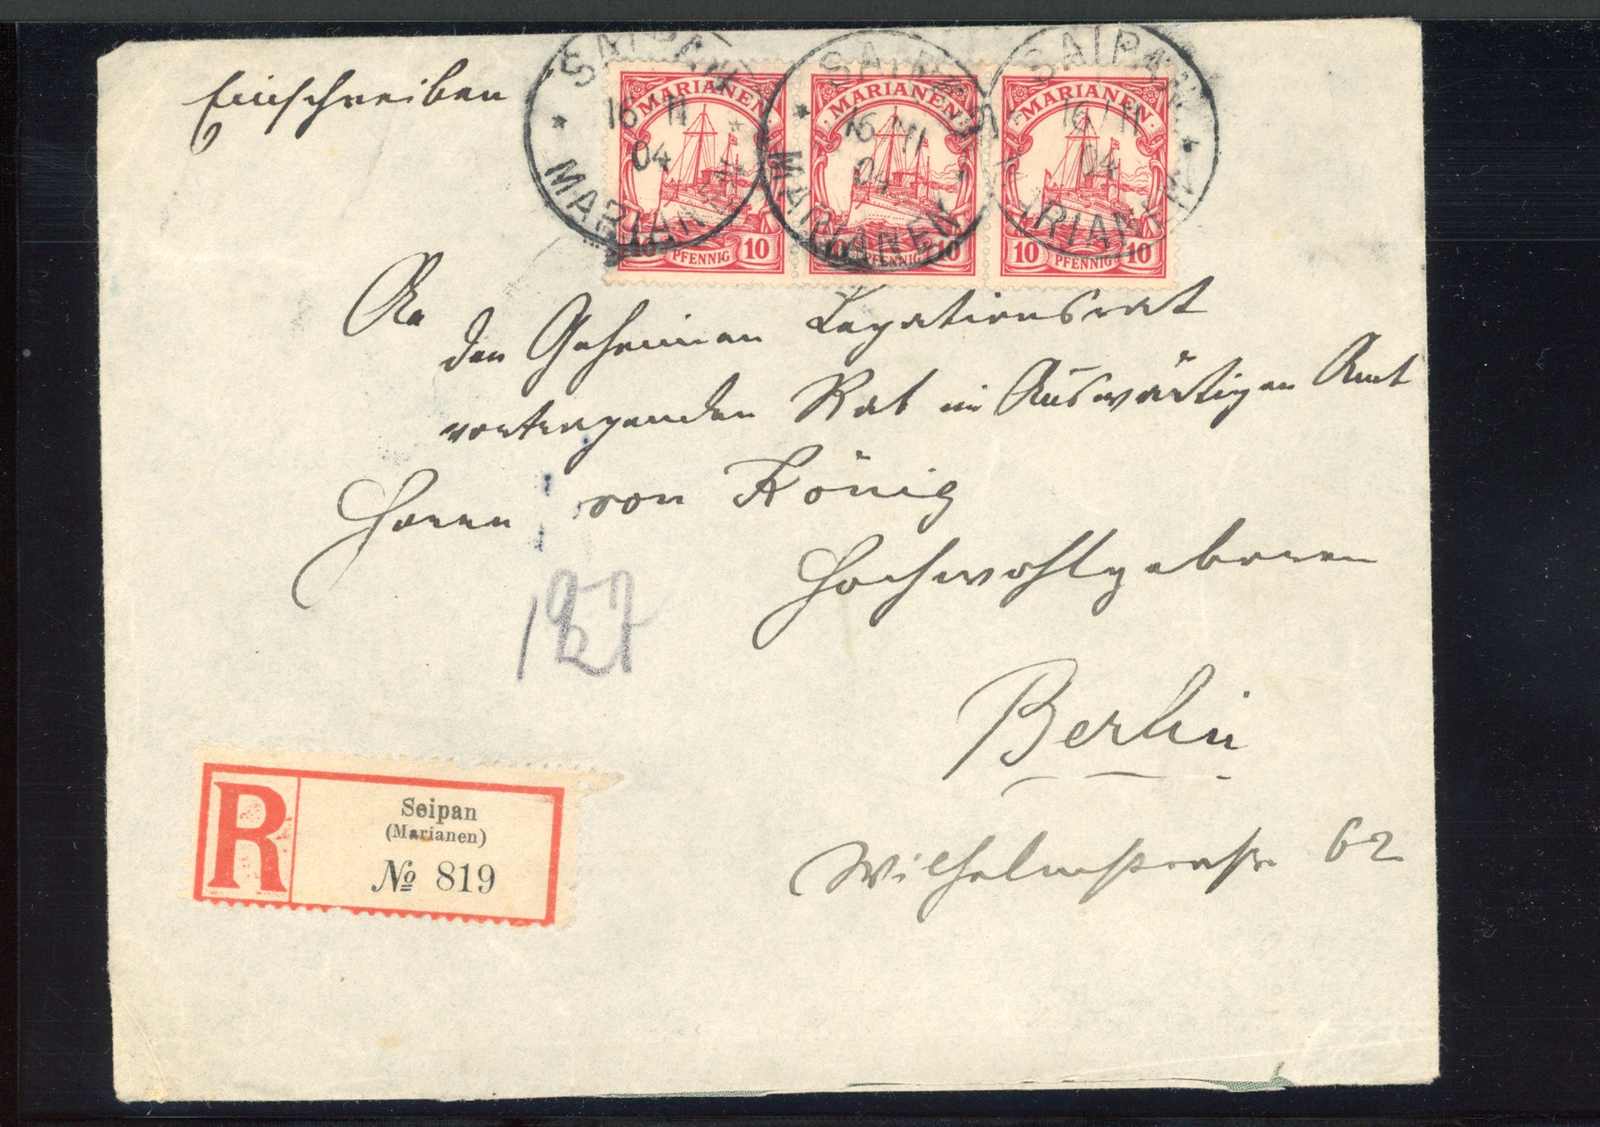 Einschreiben
SAIPAN
16/11
04
MARIANEN
SAIPAN
16/11
04
MARIANEN
SAIPAN
16/11
04
MARIANEN
MARIANEN
10 PFENNIG 10
MARIANEN
10 PFENNIG 10
MARIANEN
10 PFENNIG 10
An
den Geheimen Legationsrat
vortragenden Rat im Auswärtigen Amt
Herrn von König
Hochwohlgeboren
Berlin
Wilhelmstrasse 62
R
Seipan
(Marianen)
№ 819